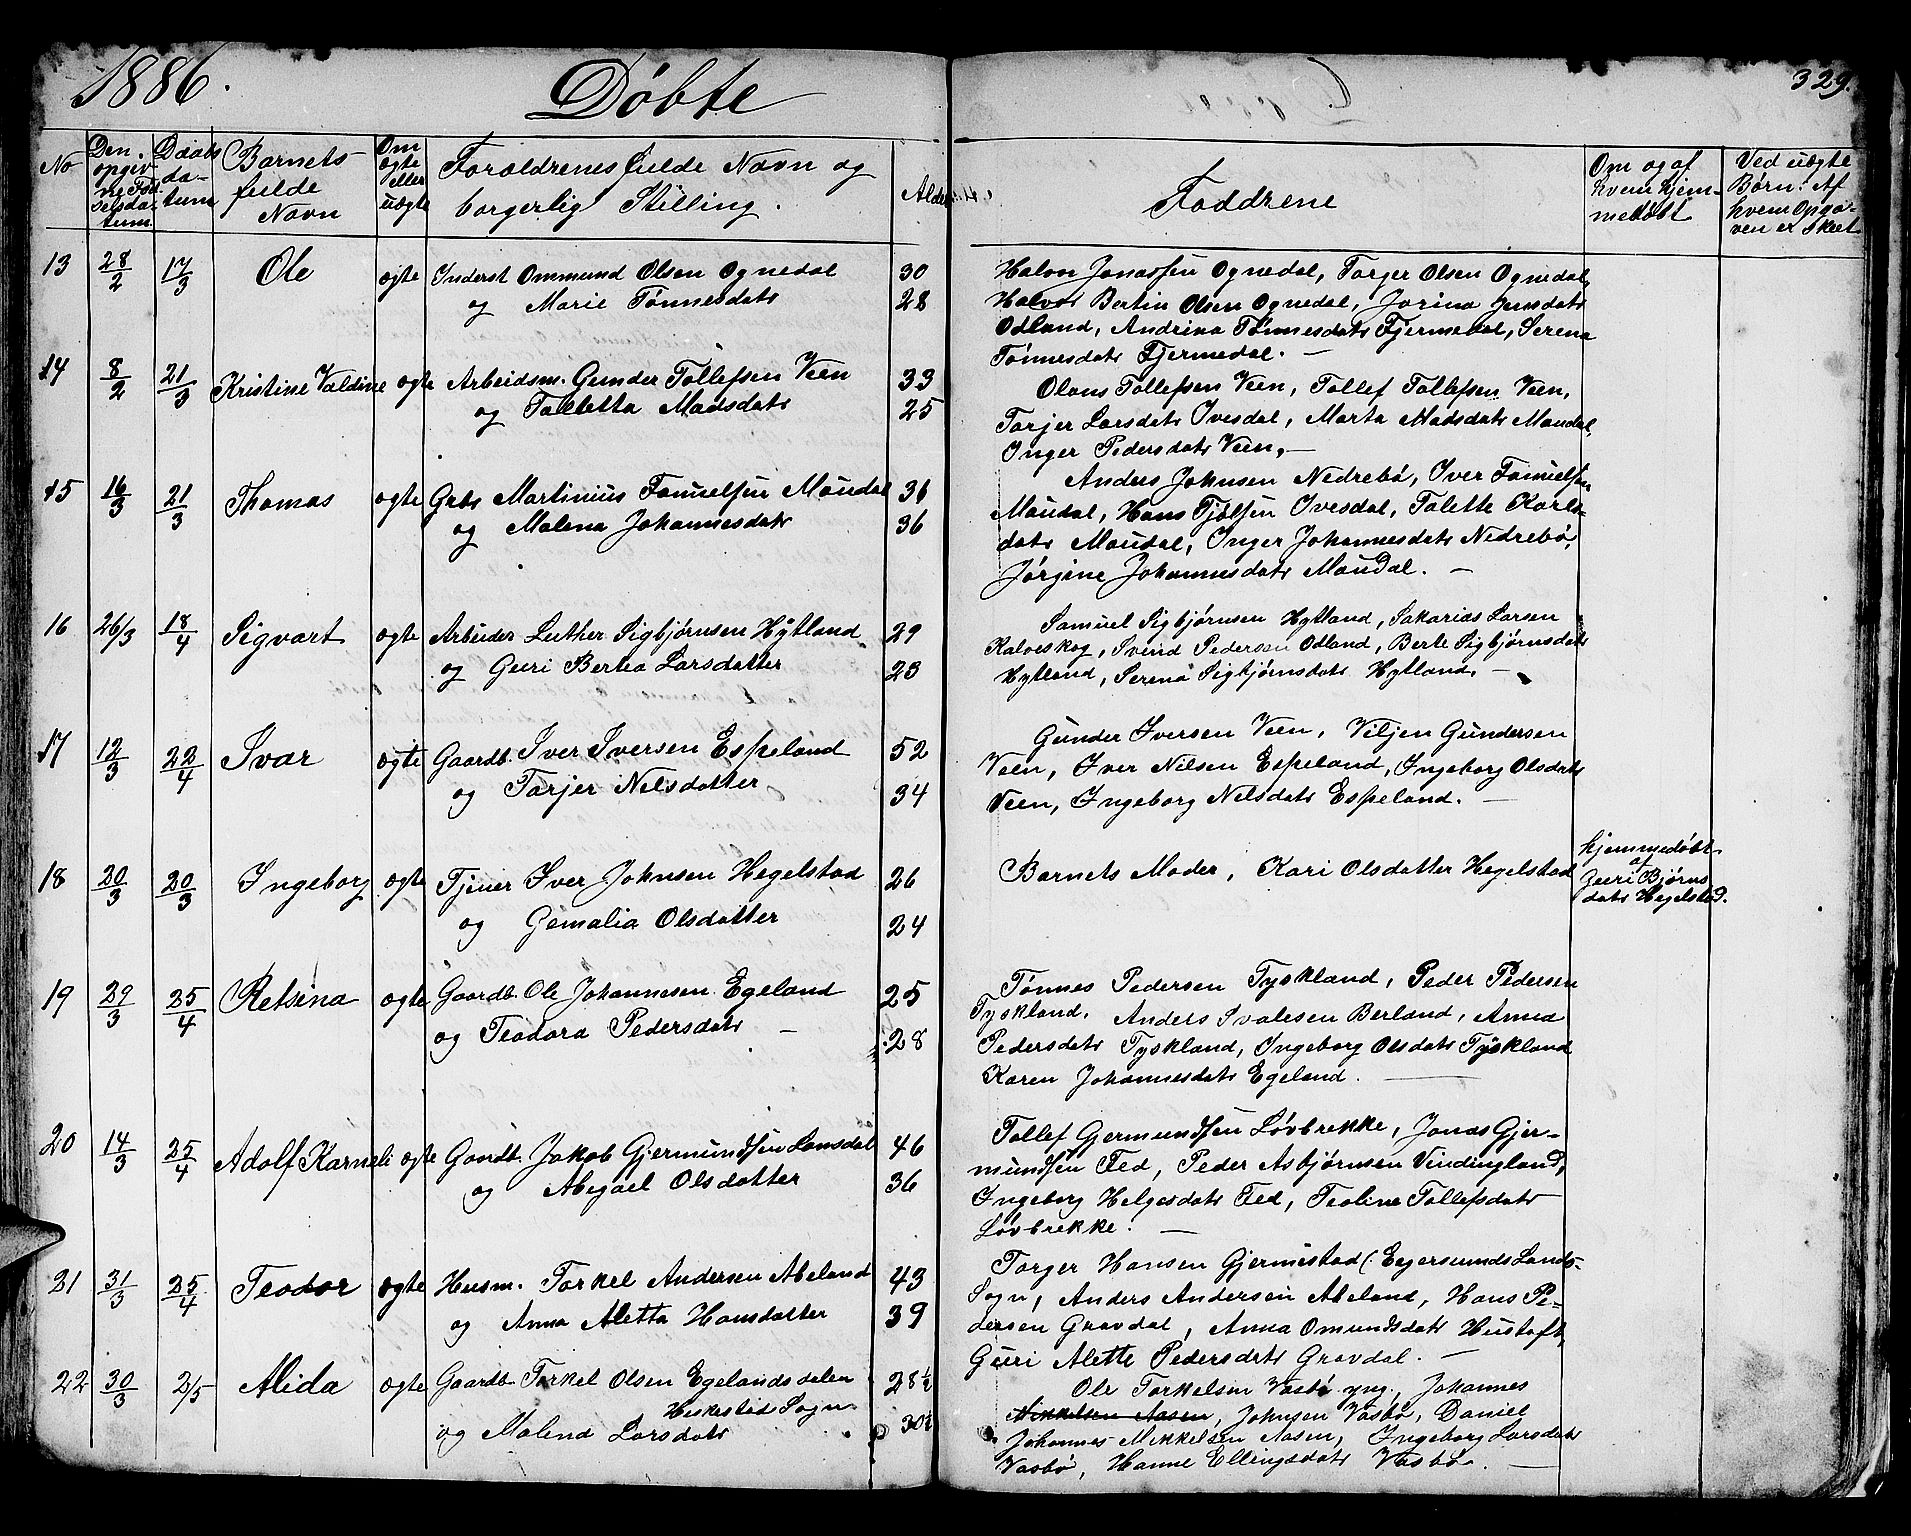 1886.
Döbte
329.
No
Den opgivne Födselsdatum
Daabsdatum
Barnets fulde Navn
Om ægte eller uægte
Forældrenes fulde Navn og borgerlig Stilling.
Alder
Faddrene
Om og af hvem hjemmedöbt
Ved uægte Börn: Af hvem Opgaven er skeet
13 28/2 17/3 Ole ægte Inderst Ommund Olsen Ognedal 30
og Marie Tönnesdatr 28
Halvor Jonassen Ognedal, Torger Olsen Ognedal,
Halvor Bertin Olsen Ognedal, Jorina Jensdatr
Odland, Andrina Tönnesdatr Fjermedal, Serena
Tönnesdatr Fjermedal. —
14 8/2 21/3 Kristine Valdine ægte Arbeidsm. Gunder Tollefsen Veen 33
og Talletta Madsdatr 25
Olaus Tollefsen Veen, Tollef Tollefsen Veen,
Torjer Larsdatr Ivesdal, Marta Madsdatr Maudal,
Inger Pedersdatr Veen, —
15 16/3 21/3 Thomas ægte Grbr Martinius Samuelsen Maudal 36
og Malena Johannesdatr 36
Anders Johnsen Nedrebö, Iver Samuelsen
Maudal, Hans Tjölsen Ivesdal, Talette Karls-
datr Maudal, Inger Johannesdatr Nedrebö,
Jörgine Johannesdatr Maudal. —
16 26/3 18/4 Sigvart ægte Arbeider Luther Sigbjörnsen Hytland 29
og Guri Bertea Larsdatter 23
Samuel Sigbjörnsen Hytland, Sakarias Larsen
Kalveskog, Svend Pedersen Odland, Berte Sigbjörnsdatr
Hytland, Serena Sigbjörnsdatr Hytland. —
17 12/3 22/4 Ivar ægte Gaardb. Iver Iversen Espeland 52
og Torjer Nilsdatter 34
Gunder Iversen Veen, Viljen Gundersen
Veen, Iver Nilsen Espeland, Ingeborg Olsdatr
Veen, Ingeborg Nilsdatr Espeland. —
18 20/3 20/3 Ingeborg ægte Tjener Iver Johnsen Hegelstad 26
og Gemalia Olsdatter 24
Barnets Moder, Kari Olsdatter Hegelstad
hjemmedöbt
af
Guri Björns
datr Hegelstad.
19 29/3 25/4 Retsina ægte Gaardb. Ole Johannesen Egeland 25
og Teodora Pedersdatr — 28
Tönnes Pedersen Tyskland, Peder Pedersen
Tyskland, Anders Svalesen Berland, Anna
Pedersdatr Tyskland, Ingeborg Olsdatr Tyskland
Karen Johannesdatr Egeland. —
20 14/3 25/4 Adolf Karneli ægte Gaardb. Jakob Gjermundsen Lonsdal 46
og Abigael Olsdatter 36
Tollef Gjermundsen Lövbrekke, Jonas Gjer-
mundsen Fed, Peder Asbjörnsen Vindingland,
Ingeborg Helgesdatr Fed, Teoline Tollefsdatr
Lövbrekke. —
21 31/3 25/4 Teodor ægte Husm. Torkel Andersen Aleland 43
og Anna Aletta Hansdatter 39
Torger Hansen Gjermestad (Egersunds Lands-
Sogn, Anders Andersen Aleland, Hans Pe-
dersen Gravdal, Anna Omundsdatr Hustoft,
Guri Alette Pedersdatr Gravdal. —
22 30/3 2/5 Alida ægte Gaardb. Torkel Olsen Egelandsdalen 28½
Heskestad Sogn
og Malena Larsdatr 30½
Ole Torkelsen Vasbö yng., Johannes
Mikkelsen Aasen, Johnsen Vasbö, Daniel
Johannes Mikkelsen Aasen, Ingeborg Larsdatr
Vasbö, Hanne Ellingsdatr Vasbö. —